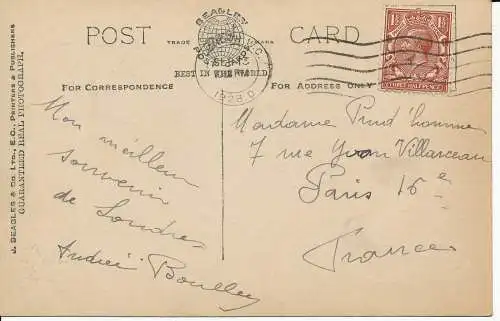 POST CARD
TRADE MARK
BEAGLES
BEST IN THE WORLD
FOR CORRESPONDENCE
FOR ADDRESS ONLY
J. BEAGLES & CO. LTD., E.C., PRINTERS & PUBLISHERS
GUARANTEED REAL PHOTOGRAPH.
Mon meilleur
souvenir
de Londres
André
Madame Prud'homme
7 rue Yvon Villarceau
Paris 16e
France